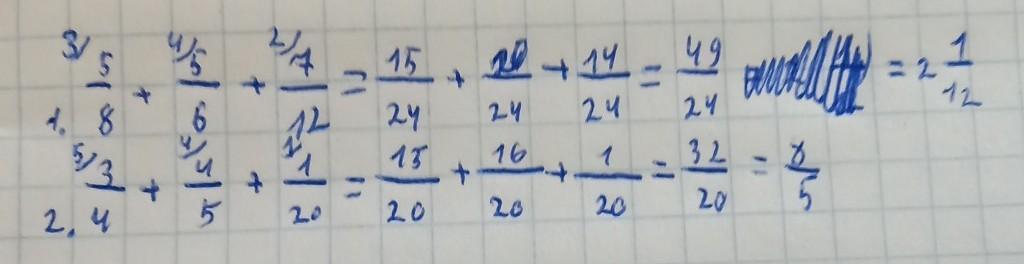 1. 3/ 5/8 + 4/ 5/6 + 2/ 7/12 = 15/24 + 20/24 + 14/24 = 49/24 = 2 1/12
2. 5/ 3/4 + 4/ 4/5 + 1/ 1/20 = 15/20 + 16/20 + 1/20 = 32/20 = 8/5